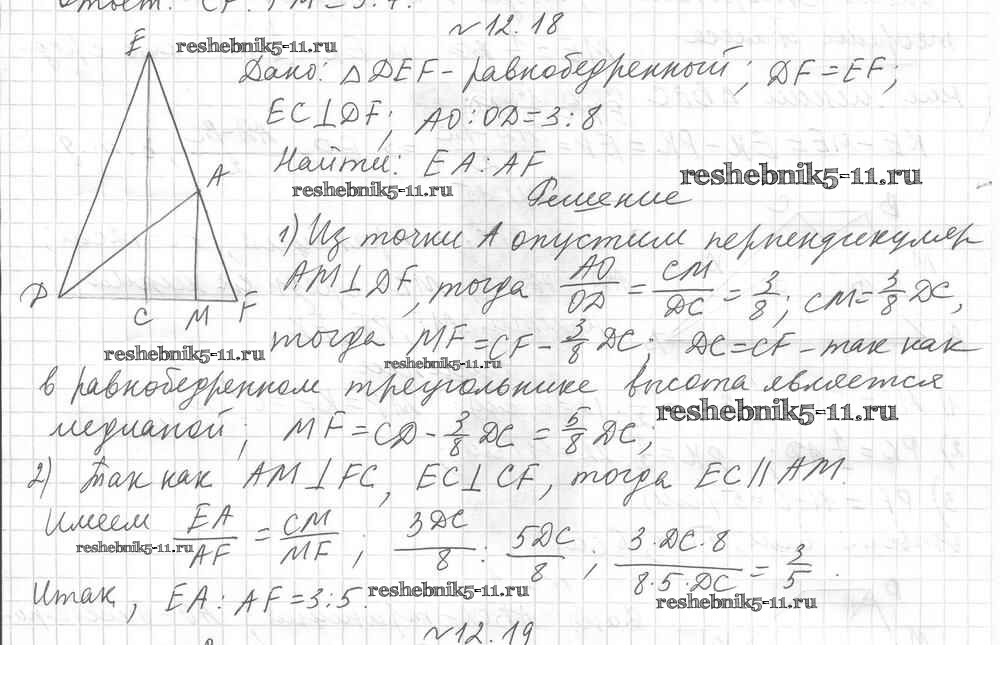 Ответ: CF : FM = 5:4.
№12.18
E
reshebnik5-11.ru
Дано: △DEF - равнобедренный; DF = EF;
EC⊥DF; AO:OD=3:8
Найти: EA:AF
A
reshebnik5-11.ru
reshebnik5-11.ru
Решение
1) Из точки A опустим перпендикуляр
AM⊥DF, тогда AO/OD = CM/DC = 3/8; CM=3/8 DC,
D
C M F
тогда MF=CF-3/8 DC; DC=CF-так как
reshebnik5-11.ru
reshebnik5-11.ru
в равнобедренном треугольнике высота является
reshebnik5-11.ru
медианой; MF=CD-3/8 DC=5/8 DC;
2) Так как AM⊥FC, EC⊥CF, тогда EC∥AM.
Имеем EA/AF = CM/MF; 3DC/8 : 5DC/8; 3·DC·8/8·5·DC = 3/5.
reshebnik5-11.ru
Итак, EA:AF=3:5.
reshebnik5-11.ru
reshebnik5-11.ru
№12.19